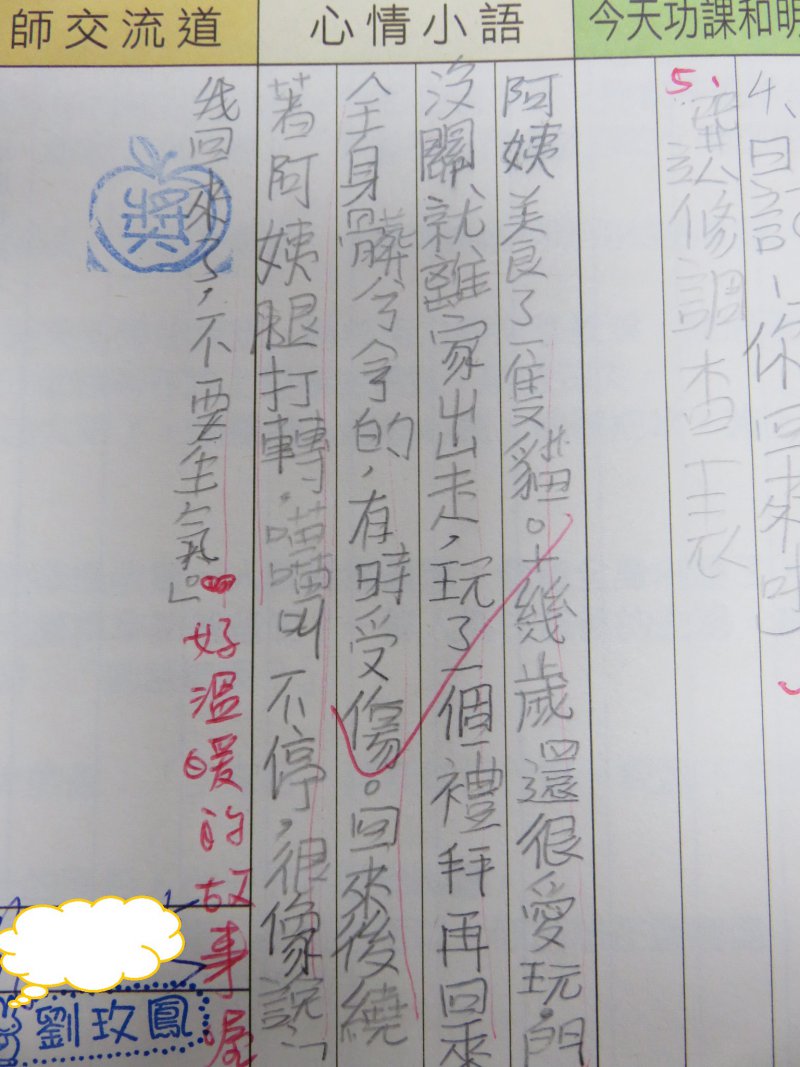 今天功課和明
心情小語
師交流道
4、日記(你回來啦)
5、修調查表
阿姨養了一隻貓。十幾歲還很愛玩。門
沒關、就離家出走，玩了一個禮拜再回來
全身髒兮兮的，有時受傷。回來後繞
著阿姨腿打轉，喵喵叫不停，很像說：「
我回來了，不要生氣。」
好溫暖的故事喔
獎
劉玫鳳